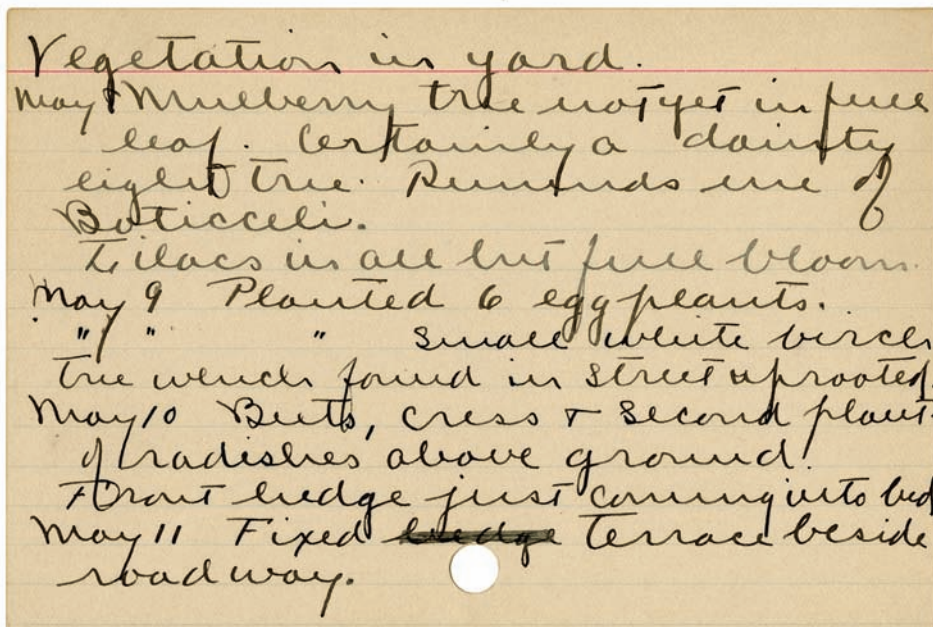 Vegetation in yard.
May 8 Mulberry tree not yet in full
leaf. Certainly a dainty
light tree. Reminds me of
Boticceli.
Lilacs in all but full bloom.
May 9 Planted 6 eggplants.
" " " small white birch
tree which found in street uprooted.
May 10 Beets, cress + second plant-
of radishes above ground.
Front hedge just coming into bud
May 11 Fixed hedge terrace beside
roadway.